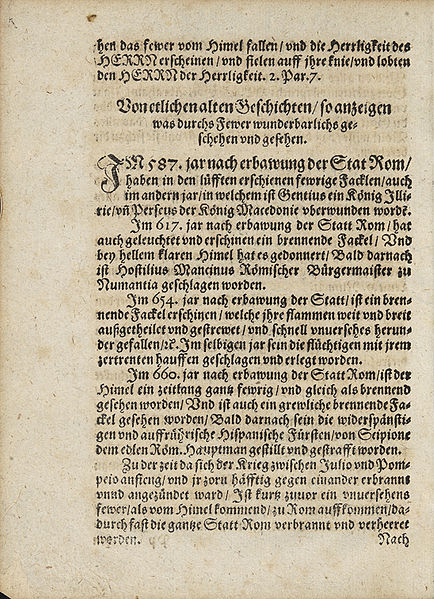 hen das fewer vom Himel fallen/ vnd die Herrligkeit des
HERRN erscheinen/ vnd fielen auff jhre knie/ vnd lobten
den HERRN der Herrligkeit. 2. Par. 7.
Von etlichen alten Geschichten/ so anzeigen
was durchs Fewer wunderbarlichs ge-
schehen vnd gesehen.
IM 587. jar nach erbawung der Stat Rom/
haben in den lüfften erschienen fewrige Facklen/ auch
im andern jar/ in welchem ist Gentius ein König Illi-
rie/ vñ Perseus der König Macedonie vberwunden wordẽ.
Im 617. jar nach erbawung der Statt Rom/ hat
auch geleuchtet vnd erschinen ein brennende Fackel/ Vnd
bey hellem klaren Himel hat es gedonnert/ Bald darnach
ist Hostilius Mancinus Römischer Bürgermaister zu
Numantia geschlagen worden.
Im 654. jar nach erbawung der Statt/ ist ein bren-
nende Fackel erschinen/ welche jhre flammen weit vnd breit
außgetheilet vnd gestrewet/ vnd schnell vnuersehes herun-
der gefallen/ ꝛc. Im selbigen jar sein die flüchtigen mit jrem
zertrenten hauffen geschlagen vnd erlegt worden.
Im 660. jar nach erbawung der Statt Rom/ ist der
Himel ein zeitlang gantz fewrig/ vnd gleich als brennend
gesehen worden/ Vnd ist auch ein grewliche brennende Fa-
ckel gesehen worden/ Bald darnach sein die widerspänsti-
gen vnd auffrührische Hispanische Fürsten/ von Scipione
dem edlen Röm. Hauptman gestillt vnd gestrafft worden.
Zu der zeit da sich der Krieg zwischen Julio vnd Pom-
peio anfieng/ vnd jr zorn häfftig gegen einander erbranns
vnnd angezündet ward/ Ist kurtz zuvor ein vnuersehens
fewer/ als vom Himel kommend/ zu Rom auffkommen/ da-
durch fast die gantze Statt Rom verbrannt vnd verheeret
worden. Nach